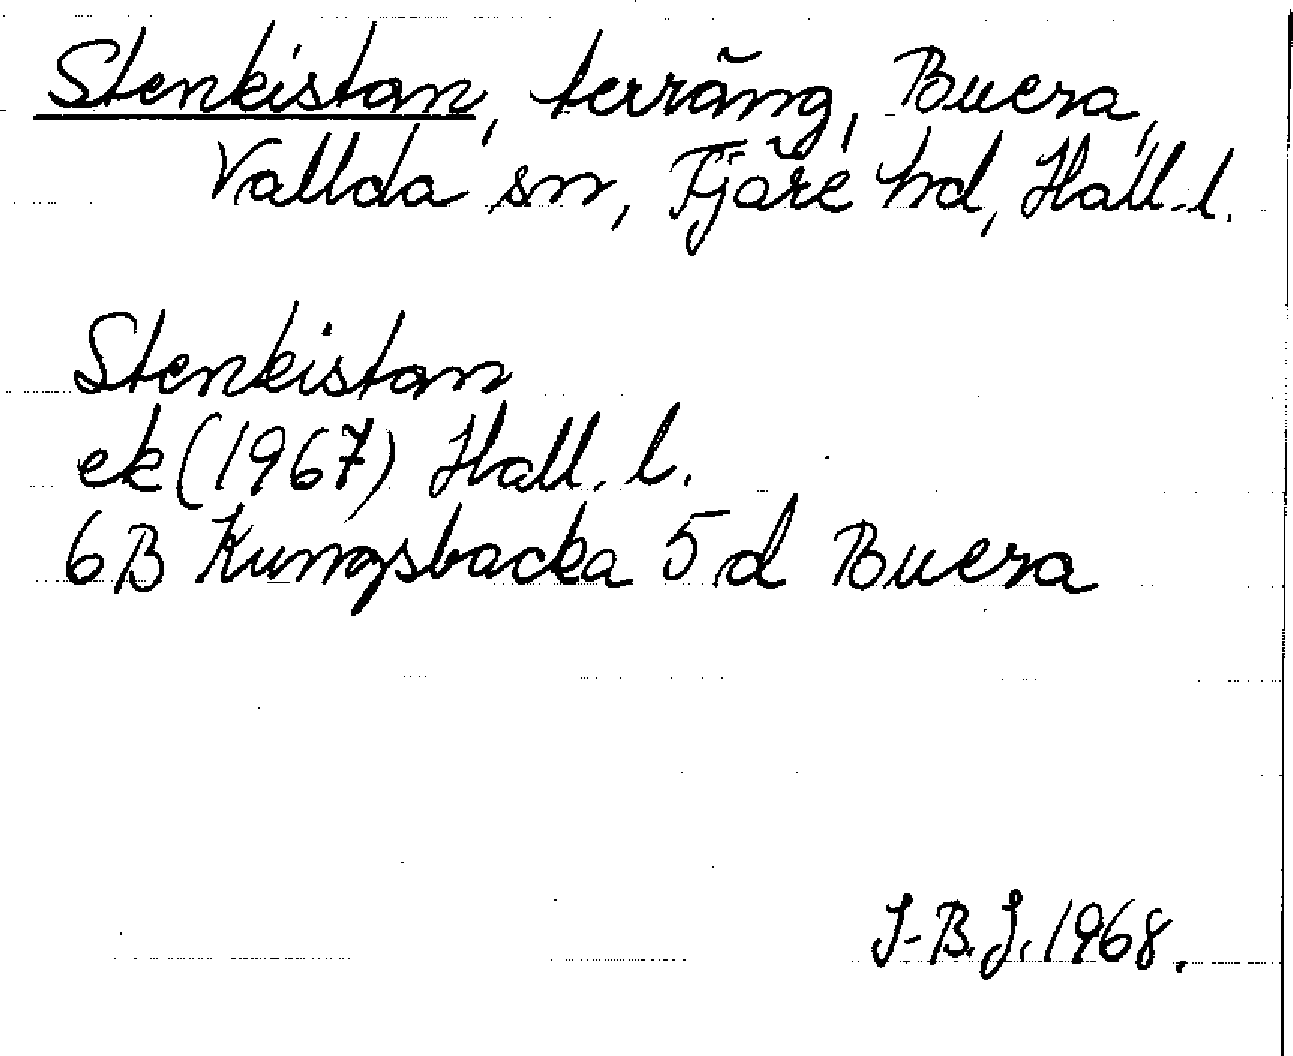 Stenkistan, terräng, Buera,
Vallda sn, Fjäre hd, Hall. l.
Stenkistan
ek (1967) Hall. l.
6B Kungsbacka 5d Buera
J-B.J. 1968.